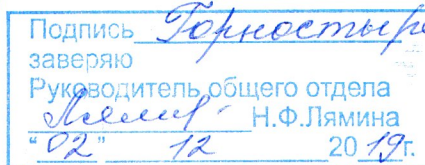 Подпись Горностыре
заверяю
Руководитель общего отдела
Н.Ф.Лямина
"02" 12 2019г.